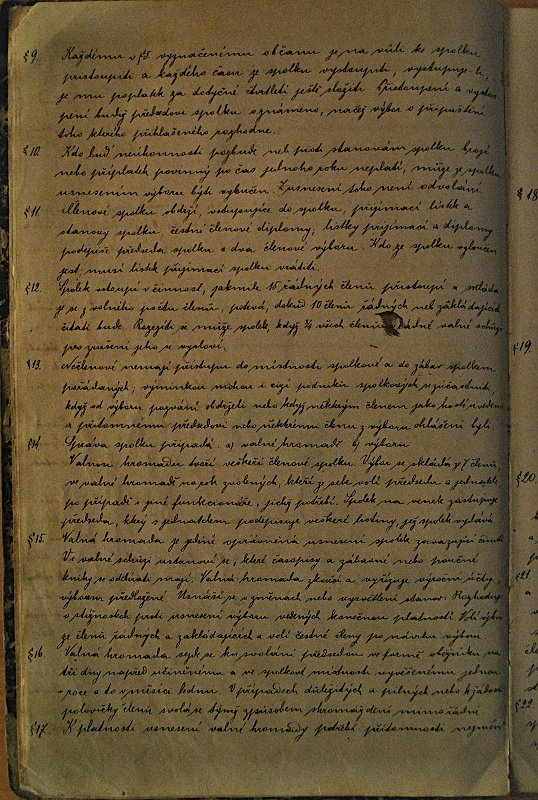 § 9. Každému v §5. vyznačenému občanu je na vůli ke spolku
přistoupiti a každého času ze spolku vystoupiti, vystupuje-li,
je mu poplatek za dotyčné čtvrtletí ještě složiti. Přistoupení a vystou
pení budiž předsedovi spolku oznámeno, načež výbor o připuštění
toho kterého přihlášeného rozhodne.
§ 10. Kdo buď neúhonnosti pozbude neb proti stanovám spolku brojí
nebo příplatek povinný po čas jednoho roku neplatí, může ze spolku
usnesením výboru býti vyloučen. Z usnesení toho není odvolání.
§ 11. Členové spolku obdrží, vstupujíce do spolku, přijímací lístek a
stanovy spolku, čestní členové diplomy; lístky přijímací a diplomy
podepíše předseda spolku a dva členové výboru. Kdo ze spolku vyloučen
jest, musí lístek přijímací spolku vrátiti.
§ 12. Spolek vstoupí v činnost, jakmile 15 řádných členů přistoupí a skládá
se z volného počtu členů, potrvá, dokud 10 členů řádných neb zakládajících
čítati bude. Rozejíti se může spolek, když ¾ všech členů řádné valné schůze
pro zrušení jeho se vysloví.
§ 13. Nečlenové nemají přístupu do místnosti spolkové a do zábav spolkem
pořádaných; výminkou mohou i cizí podniků spolkových se zúčastniti,
když od výboru pozvání obdrželi nebo když některým členem jako hosti uvedeni
a přítomnému předsedovi nebo některému členu z výboru ohlášeni byli.
§ 14. Správa spolku připadá: a) valné hromadě b) výboru
Valnou hromadu tvoří veškeří členové spolku. Výbor se skládá z 7 členů,
ve valné hromadě na rok zvolených, kteří ze sebe volí předsedu a jednatele
po případě i jiné funkcionáře, jichž potřebí. Spolek na venek zastupuje
předseda, který s jednatelem podepisuje veškeré listiny, jež spolek vydává.
§ 15. Valná hromada je jedině oprávněna usnesení spolek zavazující činiti.
Ve valné schůzi ustanoví se, které časopisy a zábavné nebo poučné
knihy se odbírati mají. Valná hromada zkouší a vyřizuje výroční účty,
výborem předložené. Usnáší se o změnách nebo vysvětlení stanov. Rozhoduje
o stížnostech proti usnesení výboru vedených konečnou platností. Volí výbor
ze členů řádných a zakládajících a volí čestné členy po návrhu výboru.
§ 16. Valná hromada sejde se ku svolání předsedou ve formě oběžníku na
tři dny napřed učiněnému a ve spolkové místnosti vyvěšenému jednou
roce a to v měsíci lednu. V případech důležitých a pilných nebo k žádosti
polovičky členů svolá se týmž způsobem shromáždění mimořádné.
§ 17. K platnosti usnesení valné hromady potřebí přítomnosti nejméně
§ 18
§ 19.
§ 20.
§ 21
§ 22